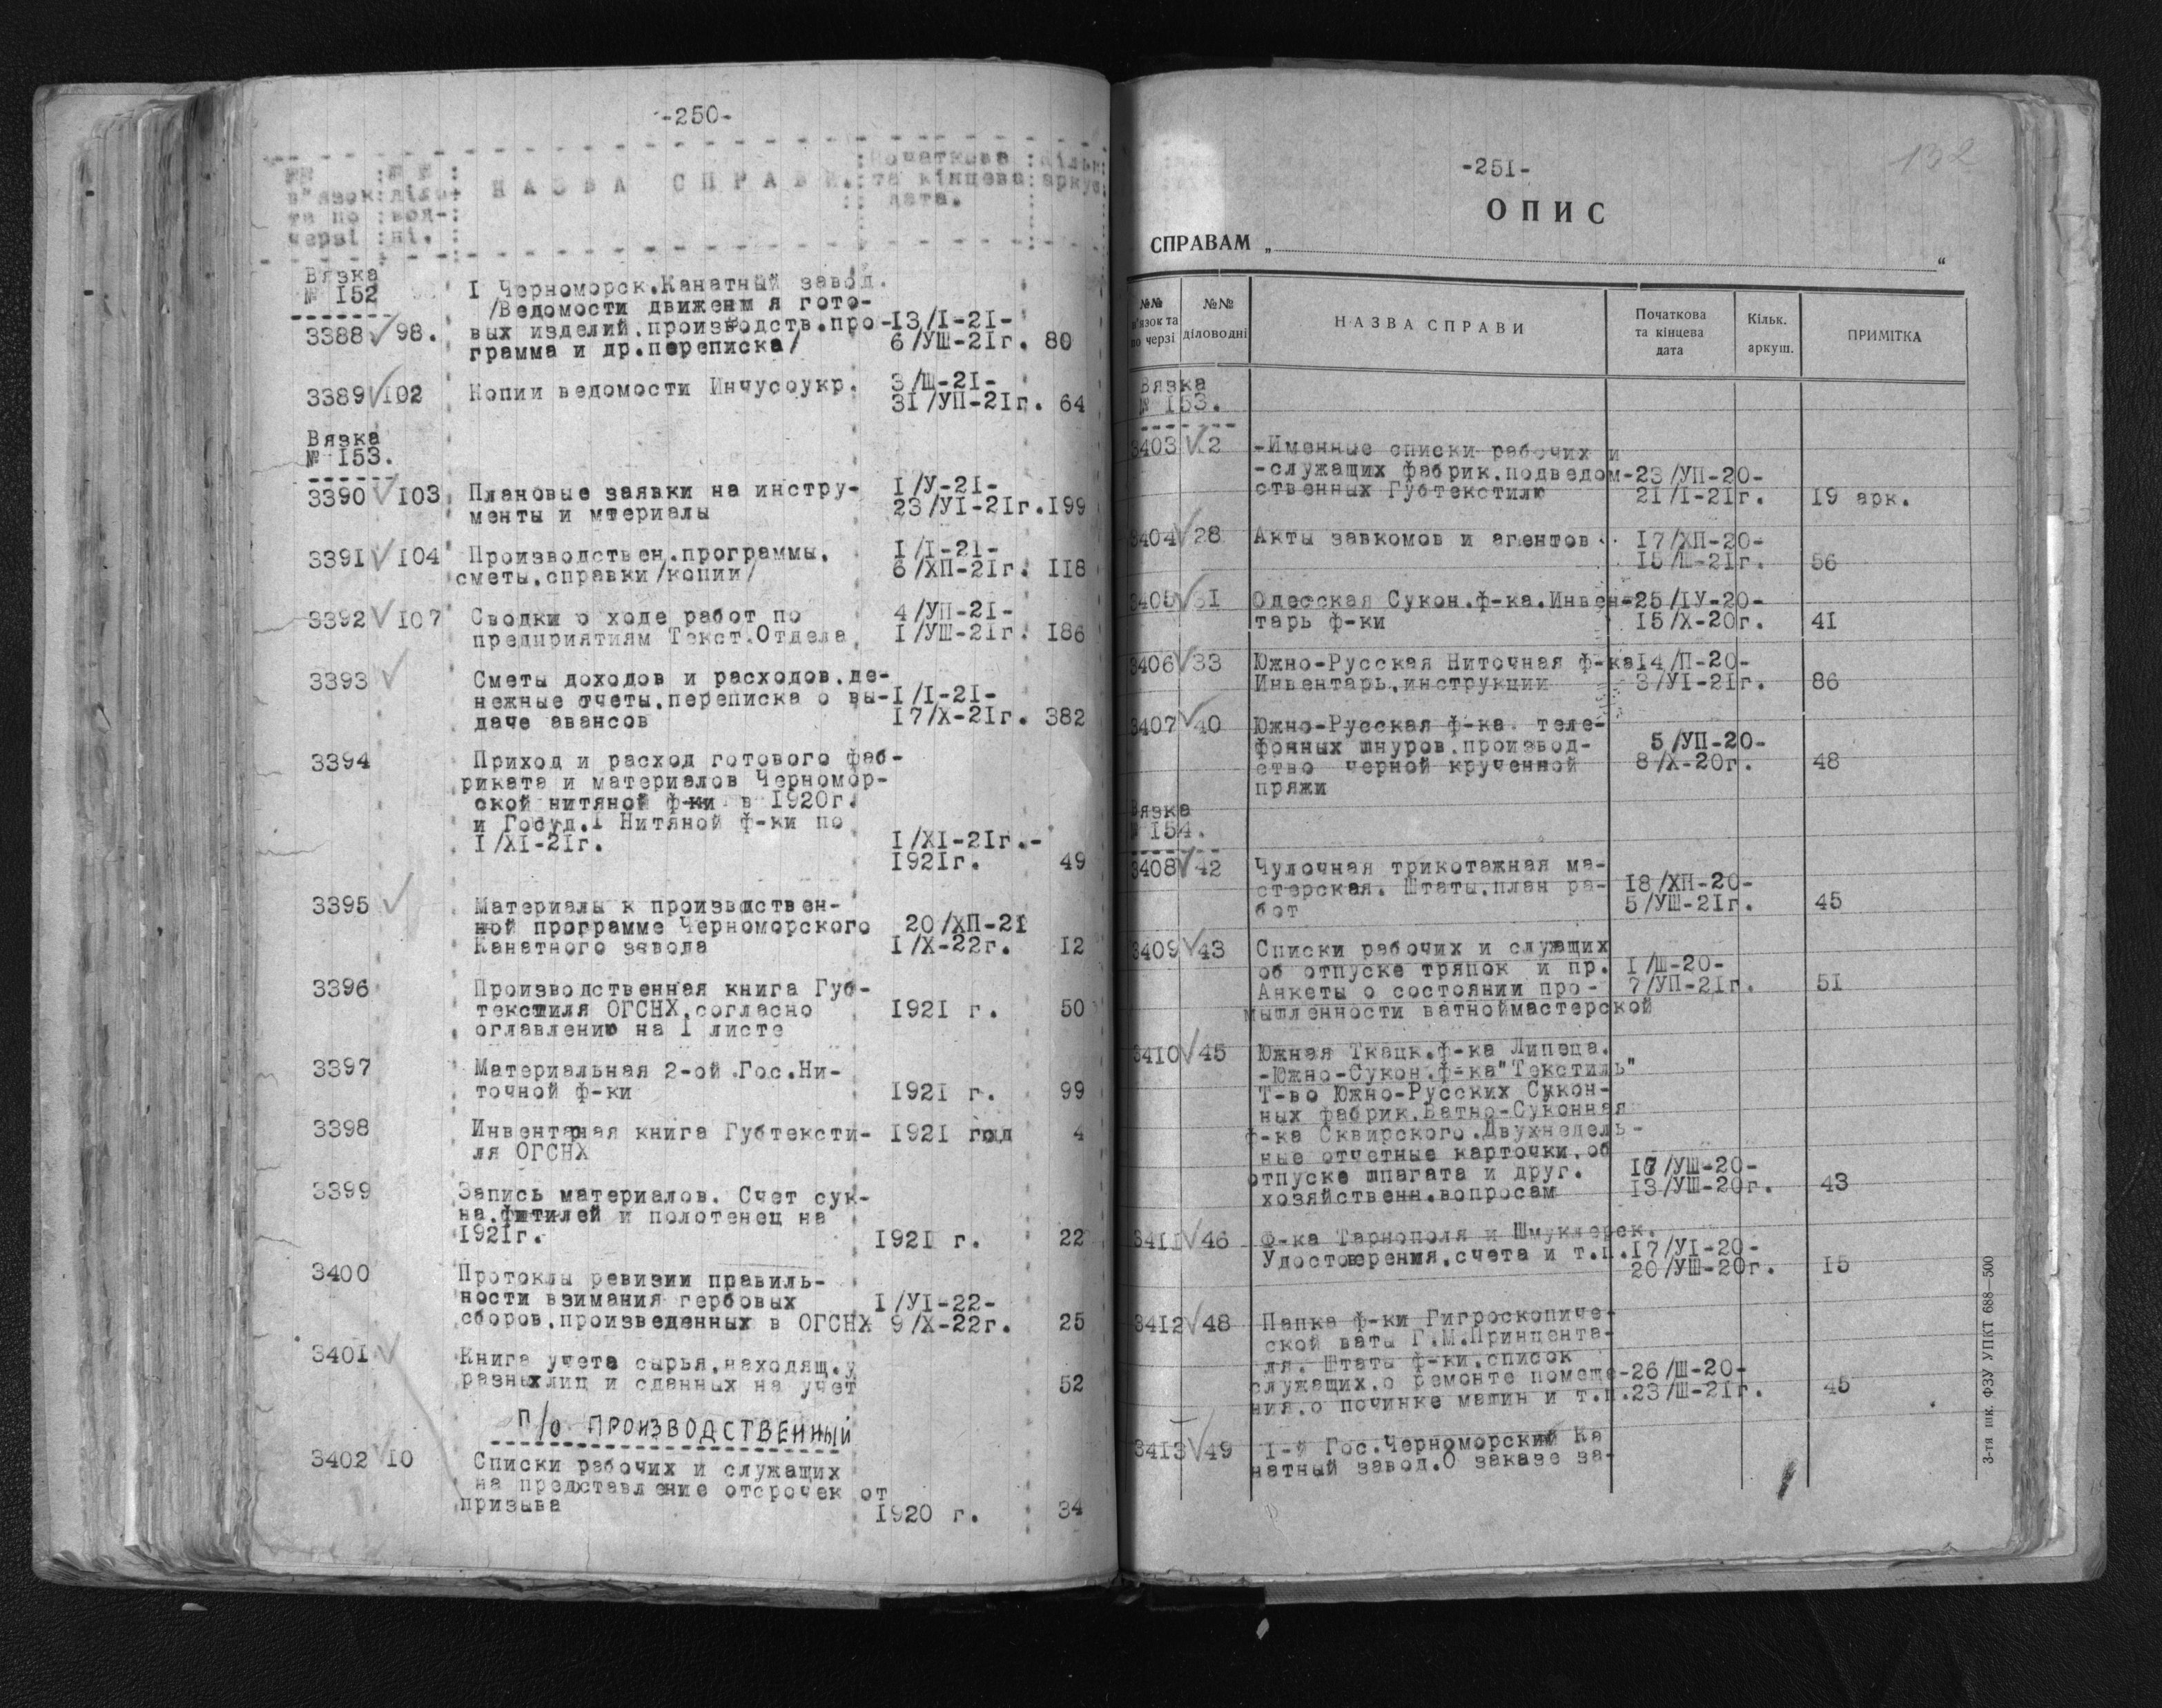 -250-
№№ : №№ : Початкова : Кільк
в"язок: діло- : НАЗВА СПРАВИ. : та кінцева: аркуш.
та по : вод-: дата.
черзі : ні. :
Вязка
№ 152
3388 98. I Черноморск.Канатный завод.
/Ведомости движения гото-
вых изделий.производств.про-13/I-21-
грамма и др.переписка/ 6/УШ-21г. 80
3389 102 Копии ведомости Инчусоукр. 3/Ш-21-
31/УП-21г. 64
Вязка
№ 153.
3390 103 Плановые заявки на инстру- 1/У-21-
менты и мтериалы 23/УI-21г.199
3391 104 Производствен.программы. 1/I-21-
сметы.справки/копии/ 6/ХП-21г. 118
3392 107 Сводки о ходе работ по 4/УП-21-
предприятиям Текст.Отдела 1/УШ-21г. 186
3393 Сметы доходов и расходов.де-
нежные отчеты.переписка о вы-1/I-21-
даче авансов 17/Х-21г. 382
3394 Приход и расход готового фаб-
риката и материалов Черномор-
ской нитяной ф-ки в 1920г.
и Госуд.I Нитяной ф-ки по
1/XI-21г. 1/XI-21г.-
1921г. 49
3395 Материалы к производствен-
ной программе Черноморского 20/ХП-21
Канатного завода 1/Х-22г. 12
3396 Производственная книга Губ-
текстиля ОГСНХ.согласно 1921 г. 50
оглавлению на 1 листе
3397 Материальная 2-ой Гос.Ни-
точной ф-ки 1921 г. 99
3398 Инвентарная книга Губтексти- 1921 год 4
ля ОГСНХ
3399 Запись материалов. Счет сук-
на.фитилей и полотенец на
1921г. 1921 г. 22
3400 Протоклы ревизии правиль-
ности взимания гербовых 1/УI-22-
сборов.произведенных в ОГСНХ 9/Х-22г. 25
3401 Книга учета сырья.находящ.у
разныхлиц и сданных на учет 52
П/о ПРОИЗВОДСТВЕННЫЙ
3402 10 Списки рабочих и служащих
на представление отсрочек от
призыва 1920 г. 34
132
-251-
ОПИС
СПРАВАМ „ “
№№ в'язок та по черзі №№ діловодні НАЗВА СПРАВИ Початкова та кінцева дата Кільк. аркуш. ПРИМІТКА
Вязка
№ 153.
3403 2 -Именные списки рабочих и
-служащих фабрик.подведом-23/УП-20-
ственных Губтекстилю 21/I-21г. 19 арк.
3404 28 Акты завкомов и агентов. 17/ХП-20-
15/Ш-21г. 56
3405 31 Одесская Сукон.ф-ка.Инвен-25/IУ-20-
тарь ф-ки 15/Х-20г. 41
3406 33 Южно-Русская Ниточная ф-ка14/П-20-
Инвентарь.инструкции 3/УI-21г. 86
3407 40 Южно-Русская ф-ка теле-
фонных шнуров.производ- 5/УП-20-
ство черной крученной 8/Х-20г. 48
пряжи
Вязка
№ 154.
3408 42 Чулочная трикотажная ма-
стерская. Штаты.план ра- 18/ХП-20-
бот 5/УШ-21г. 45
3409 43 Списки рабочих и служащих
об отпуске тряпок и пр. 1/Ш-20-
Анкеты о состоянии про- 7/УП-21г. 51
мышленности ватноймастерской
3410 45 Южная Ткацк.ф-ка Липеца.
-Южно-Сукон.ф-ка"Текстиль"
Т-во Южно-Русских Сукон-
ных фабрик.Ватно-Суконная
ф-ка Сквирского.Двухнедель-
ные отчетные карточки.об
отпуске шпагата и друг. /УШ-20-
хозяйственн.вопросам 13/УШ-20г. 43
3411 46 Ф-ка Тарнополя и Шмуклерск.
Удостоверения.счета и т.п.17/УI-20-
20/УШ-20г. 15
3412 48 Папка ф-ки Гигроскопиче-
ской ваты Г.М.Принцента-
ля. Штаты ф-ки.список
служащих.о ремонте помеще-26/Ш-20-
ния.о починке машин и т.п.23/Ш-21г. 45
3413 49 1-й Гос.Черноморский Ка
натный завод.О заказе за-
3-тя шк. ФЗУ УПКТ 688—500